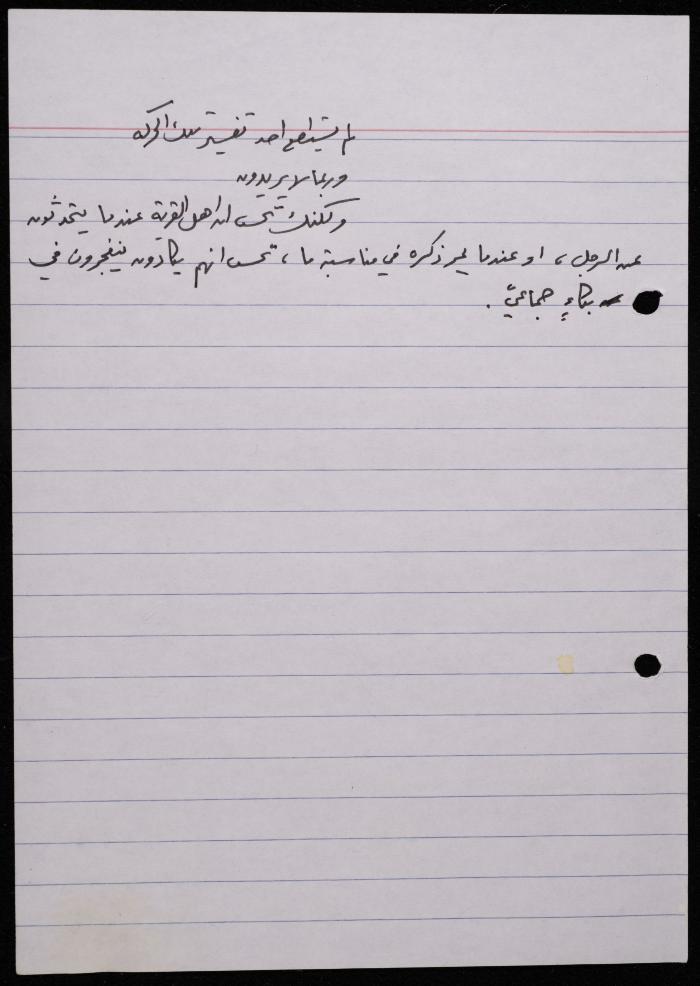 لم يستطع احد تفسير تلك الحركة
وربما لا يريدون
ولكنك تحس ان اهل القرية عندما يتحدثون
عن الرجل، او عندما يمر ذكره في مناسبة ما، تحس انهم يكادون ينفجرون في
بكاءٍ جماعيّ .